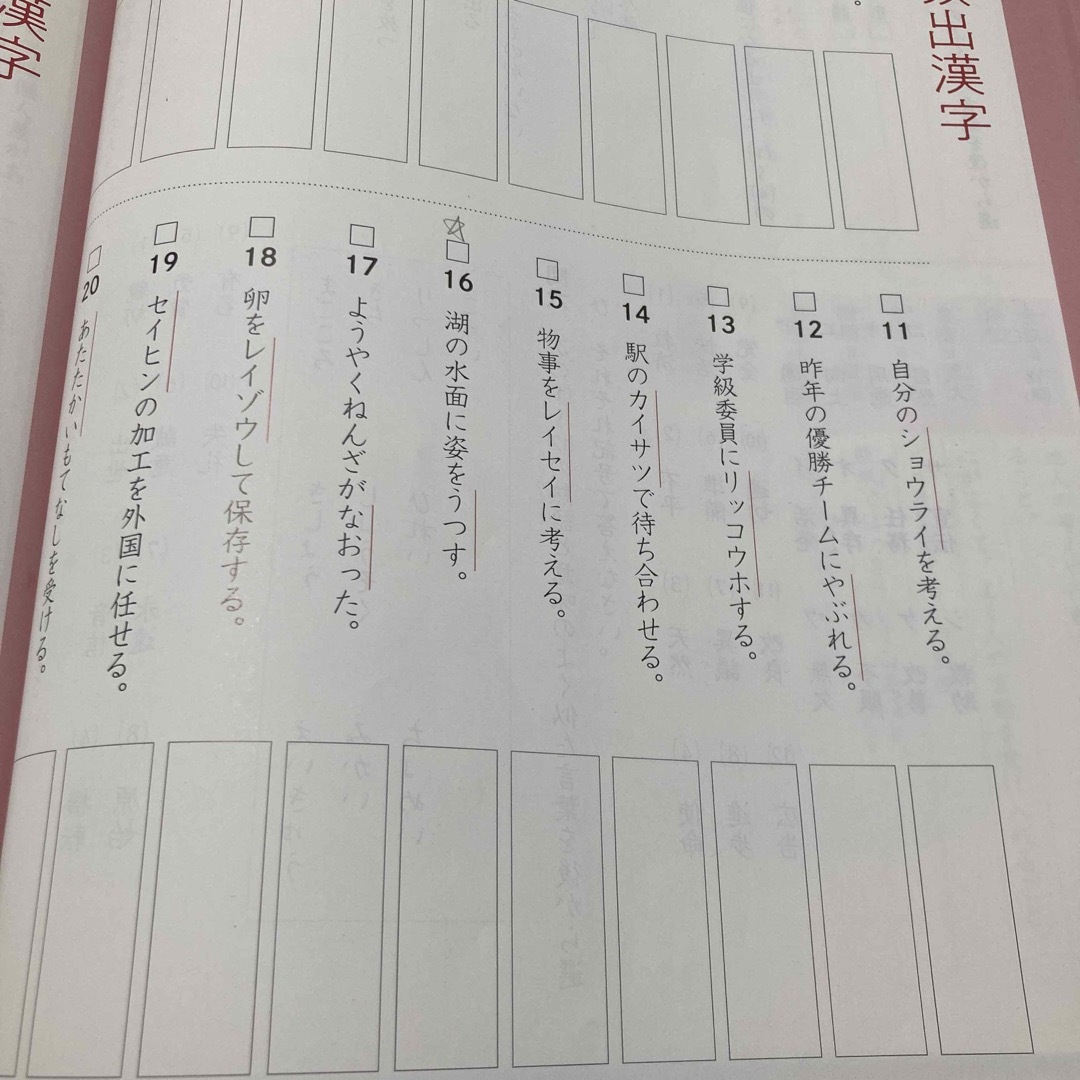 出漢字
11 自分のショウライを考える。
12 昨年の優勝チームにやぶれる。
13 学級委員にリッコウホする。
14 駅のカイサツで待ち合わせる。
15 物事をレイセイに考える。
16 湖の水面に姿をうつす。
17 ようやくねんざがなおった。
18 卵をレイゾウして保存する。
19 セイヒンの加工を外国に任せる。
20 あたたかいもてなしを受ける。
漢字